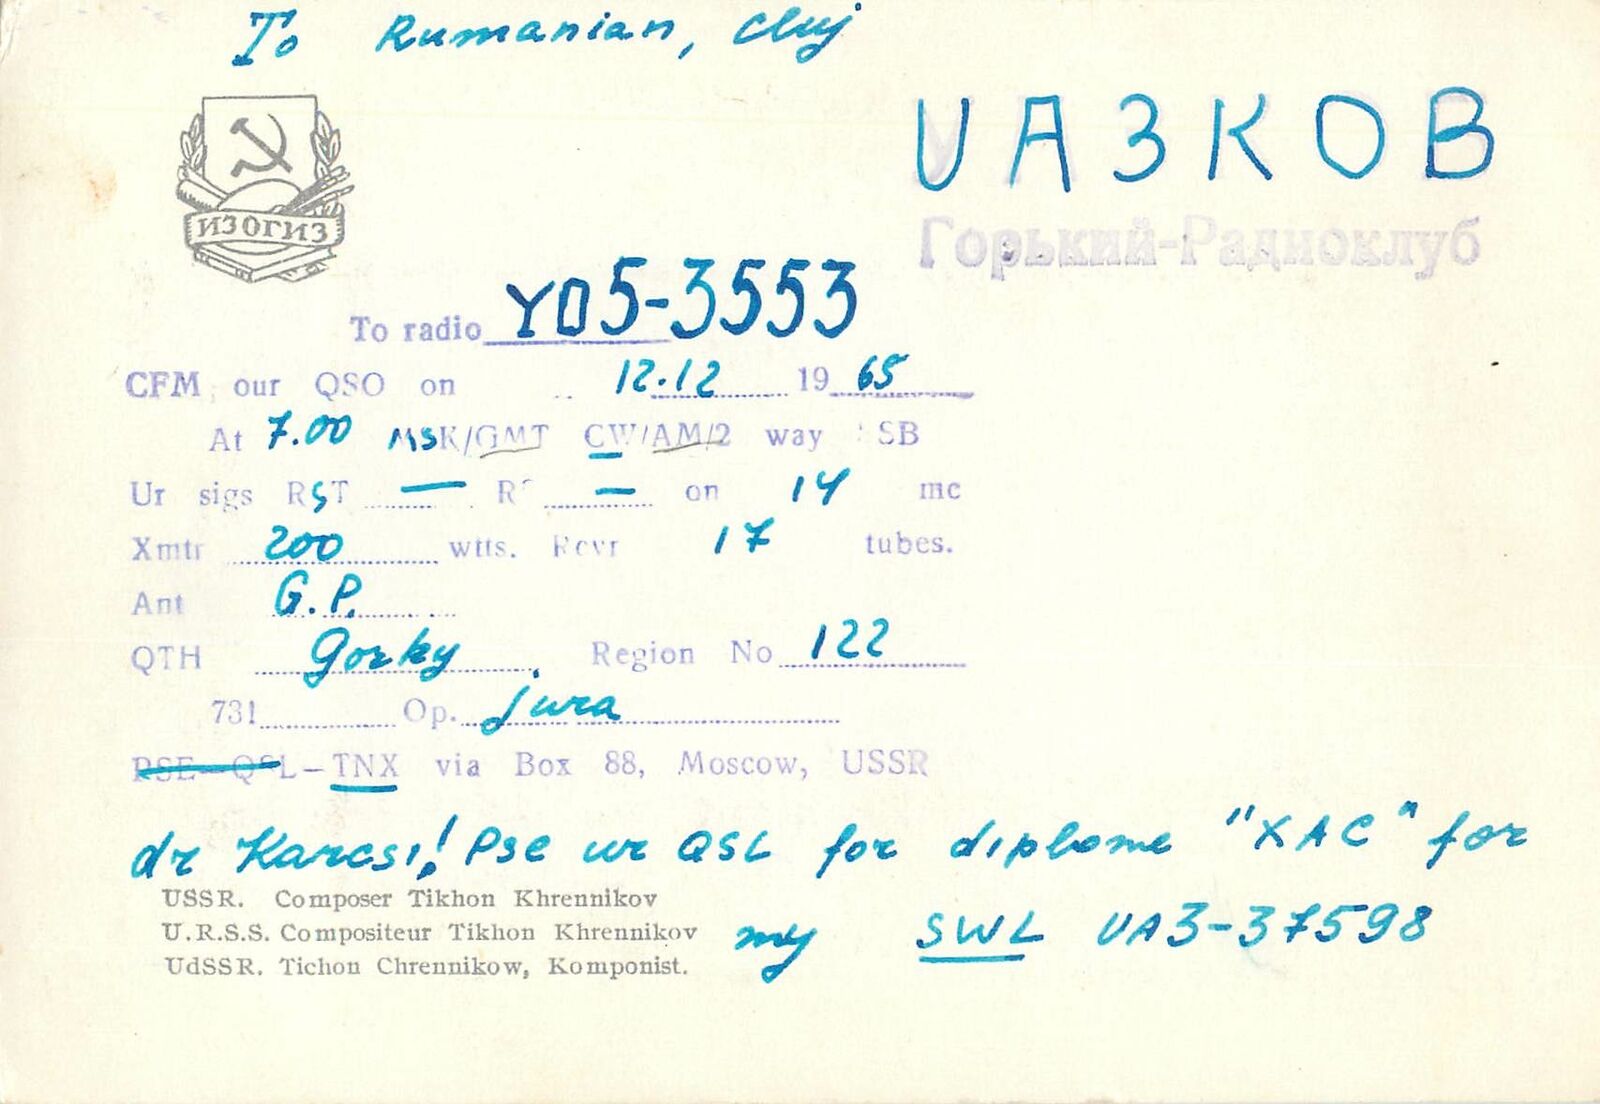 To Rumanian, Cluj
UA3KOB
ИЗОГИЗ
Горький-Радиоклуб
To radio YO5-3553
CFM our QSO on 12.12 1965
At 7.00 MSK/GMT CW/AM/2 way SB
Ur sigs RST — R — on 14 mc
Xmtr 200 wtts. Rcvr 17 tubes.
Ant G.P.
QTH Gorky, Region No 122
731 Op. Jura
PSE-QSL-TNX via Box 88, Moscow, USSR
dr Karcsi! Pse ur QSL for diplome "XAC" for
USSR. Composer Tikhon Khrennikov
U.R.S.S. Compositeur Tikhon Khrennikov my SWL UA3-37598
UdSSR. Tichon Chrennikow, Komponist.